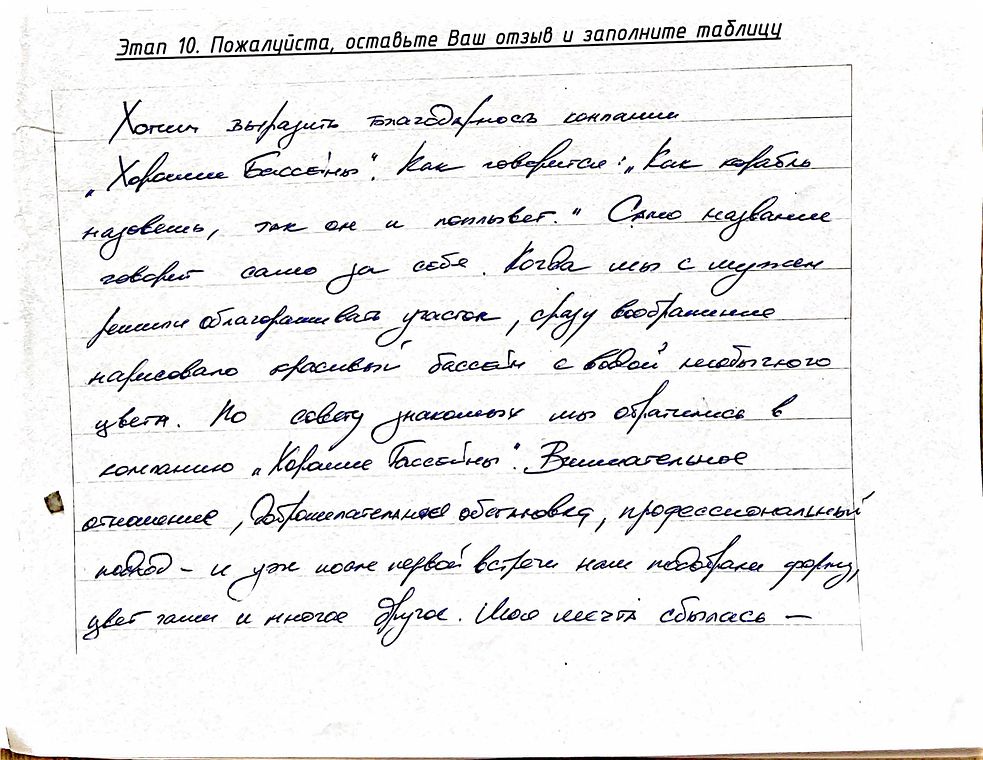 Этап 10. Пожалуйста, оставьте Ваш отзыв и заполните таблицу
Хотим выразить благодарность компании
„Хорошие Бассейны“. Как говорится: „Как корабль
назовешь, так он и поплывет.“ Само название
говорит само за себя. Когда мы с мужем
решили облагораживать участок, сразу воображение
нарисовало красивый бассейн с водой необычного
цвета. По совету знакомых мы обратились в
компанию „Хорошие Бассейны“. Внимательное
отношение, доброжелательная обстановка, профессиональный
подход – и уже после первой встречи нам подобрали форму,
цвет чаши и многое другое. Моя мечта сбылась –